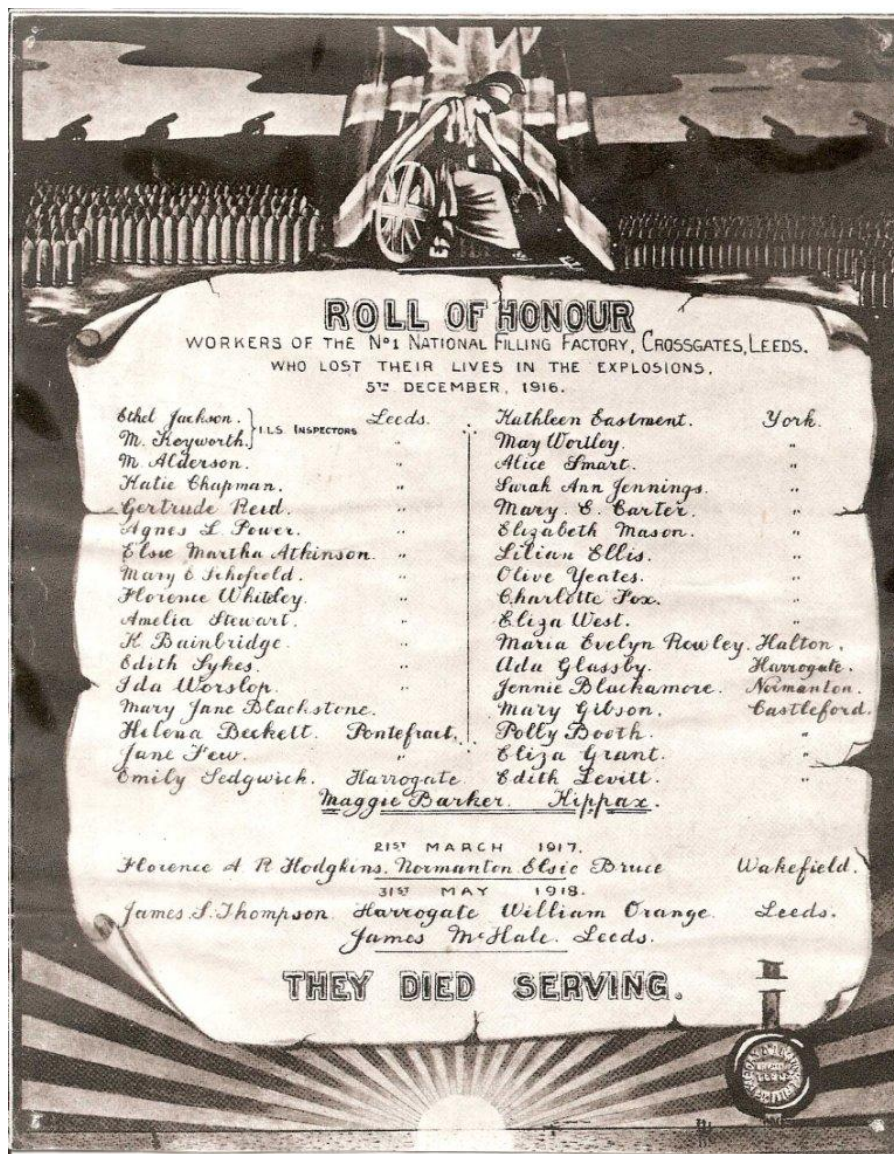 ROLL OF HONOUR
WORKERS OF THE No1 NATIONAL FILLING FACTORY, CROSSGATES, LEEDS.
WHO LOST THEIR LIVES IN THE EXPLOSIONS.
5TH DECEMBER, 1916.
Ethel Jackson. } I.L.S. INSPECTORS Leeds.
M. Keyworth. "
M. Alderson. "
Katie Chapman. "
Gertrude Reid. "
Agnes L. Power. "
Elsie Martha Atkinson. "
Mary E Schofield. "
Florence Whiteley. "
Amelia Stewart. "
K Bainbridge. "
Edith Sykes. "
Ida Worslop. "
Mary Jane Blackstone.
Helena Beckett. Pontefract.
Jane Few. "
Emily Sedgwick. Harrogate
Kathleen Eastment. York.
May Wortley. "
Alice Smart. "
Sarah Ann Jennings. "
Mary. E. Carter. "
Elizabeth Mason. "
Lilian Ellis. "
Olive Yeates. "
Charlotte Fox. "
Eliza West. "
Maria Evelyn Rowley. Halton.
Ada Glassby. Harrogate.
Jennie Blackamore. Normanton.
Mary Gibson. Castleford.
Polly Booth. "
Eliza Grant. "
Edith Levitt. "
Maggie Barker. Kippax.
21ST MARCH 1917.
Florence A. R Hodgkins. Normanton. Elsie Bruce Wakefield.
31ST MAY 1918.
James S. Thompson. Harrogate William Orange. Leeds.
James McHale. Leeds.
THEY DIED SERVING.